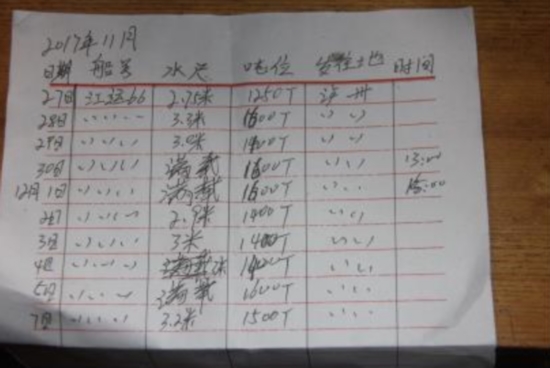 2017年11月
日期 船号 水尺 吨位 发往土地 时间
27日 江运66 2.75米 1250T
28日 〃〃〃 3.3米 1600T 〃〃
29日 〃〃〃 3.0米 1400T 〃〃
30日 〃〃〃 满载 1600T 〃〃 13:00
12月1日 〃〃〃 满载 1600T 〃〃 15:00
2日 〃〃〃 2.9米 1400T 〃〃
3日 〃〃〃 3米 1400T 〃〃
4日 〃〃〃 1400T 〃〃
5日 〃〃〃 满载 1600T 〃〃
7日 〃〃〃 3.2米 1500T 〃〃